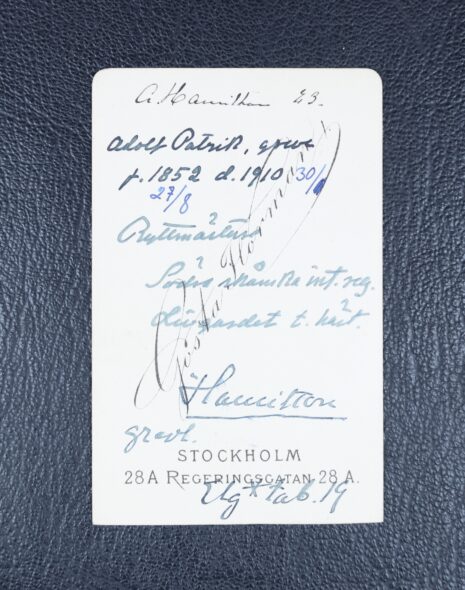 A Hamilton 23.
Adolf Patrik, greve
f. 1852 d. 1910 30/
27/8
Ryttmästare
Södra skånska inf. reg.
Livgardet t. häst.
Gösta Florman
Hamilton
grevl.
STOCKHOLM
28A REGERINGSGATAN 28 A.
Elg tab. 19